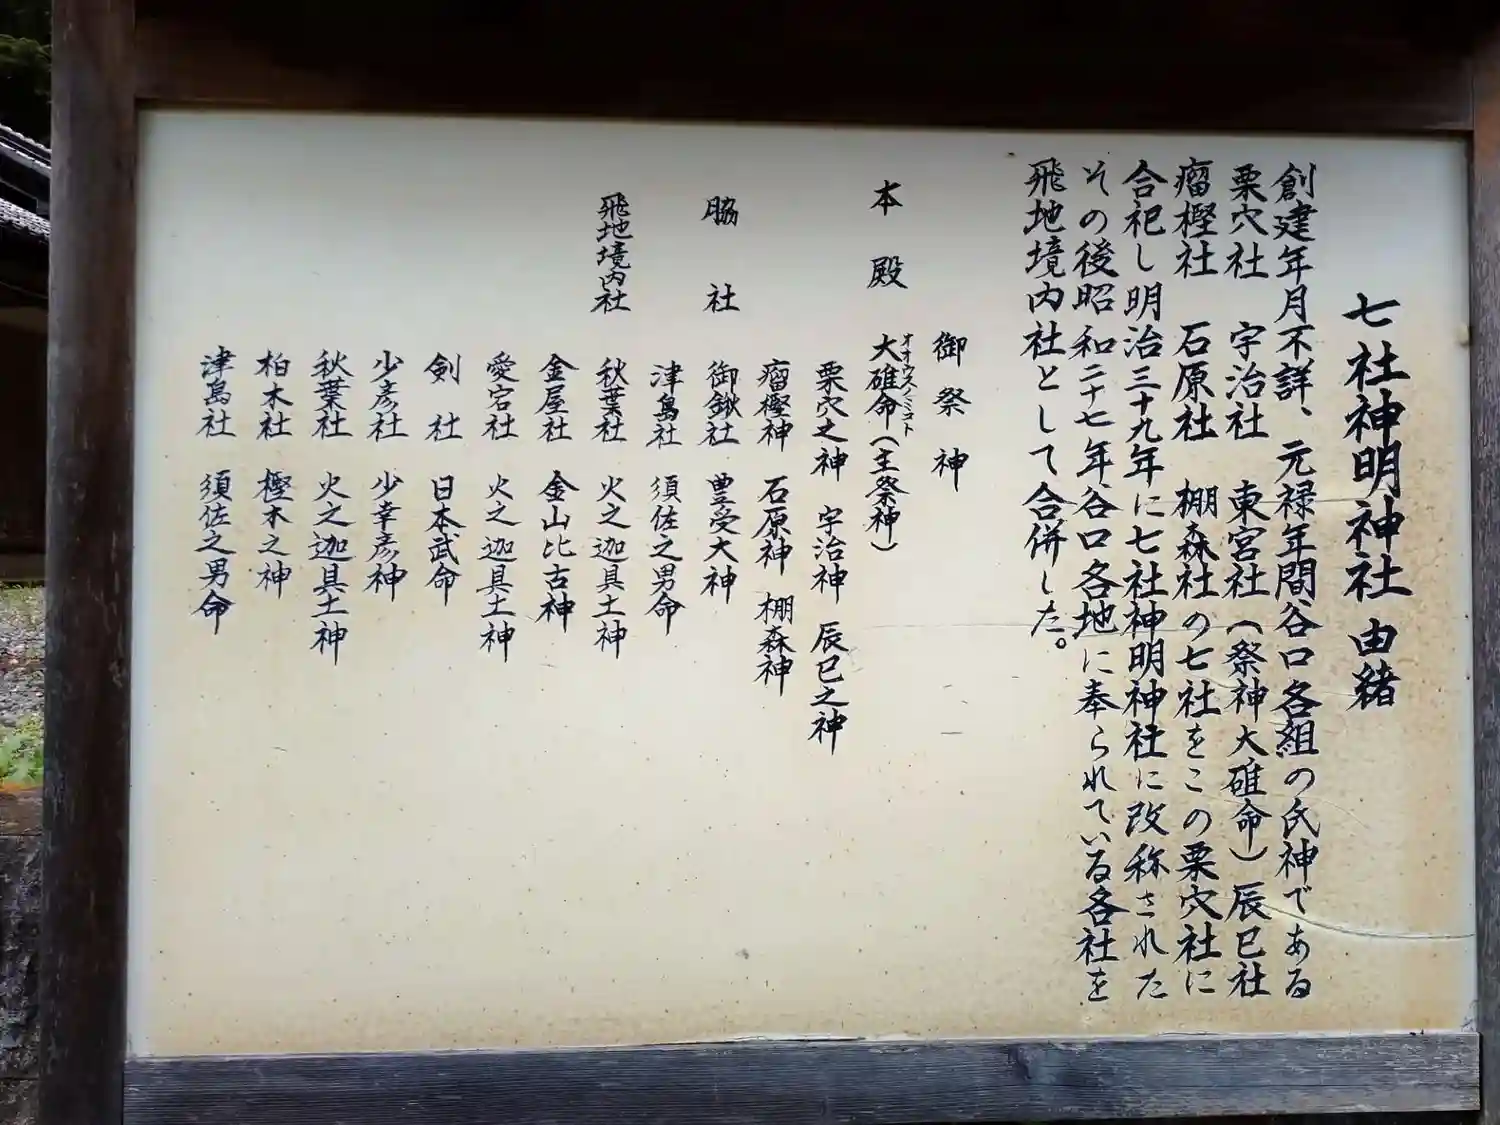 七社神明神社 由緒
創建年月不詳、元禄年間谷口各組の氏神である
栗穴社 宇治社 東宮社（祭神大碓命）辰巳社
瘤樫社 石原社 棚森社の七社をこの栗穴社に
合祀し明治三十九年に七社神明神社に改称された
その後昭和二十七年谷口各地に奉られている各社を
飛地境内社として合併した。
御祭神
本殿 大碓命（主祭神）
オオウスノミコト
栗穴之神 宇治神 辰巳之神
瘤樫神 石原神 棚森神
脇社 御鍬社 豊受大神
津島社 須佐之男命
飛地境内社 秋葉社 火之迦具土神
金屋社 金山比古神
愛宕社 火之迦具土神
剣社 日本武命
少彦社 少幸彦神
秋葉社 火之迦具土神
柏木社 樫木之神
津島社 須佐之男命